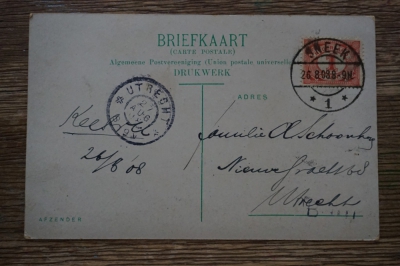 BRIEFKAART
(CARTE POSTALE)
Algemeene Postvereeniging (Union postale universelle)
DRUKWERK
SNEEK
26.8.08.8-9N.
1
UTRECHT
ADRES
Familie A Schoonberg
Nieuwe Gracht 68
Utrecht
26/8 '08
AFZENDER